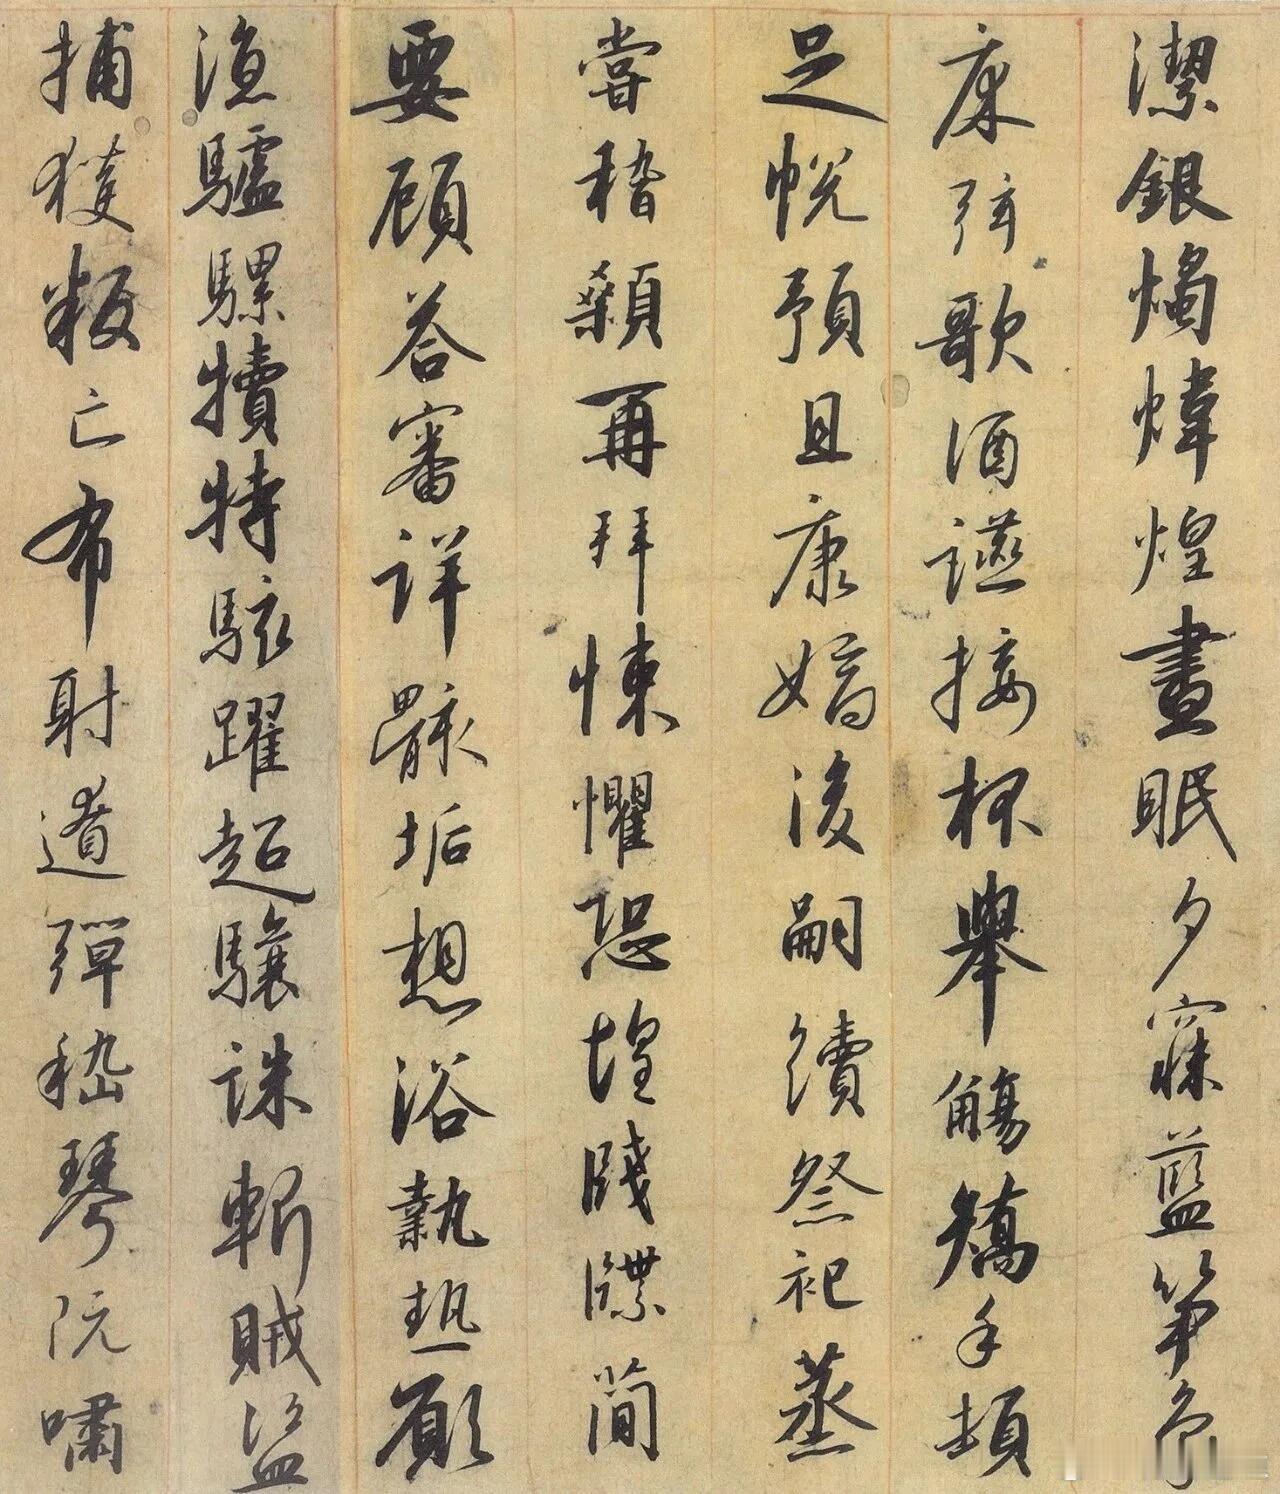 潔銀燭煒煌晝眠夕寐藍笋象
床弦歌酒讌接杯舉觴矯手頓
足悅預且康嫡後嗣續祭祀蒸
嘗稽顙再拜悚懼恐惶牋牒簡
要顧荅審詳骸垢想浴執熱願
涼驢騾犢特駭躍超驤誅斬賊盜
捕獲叛亡布射遼彈嵇琴阮嘯